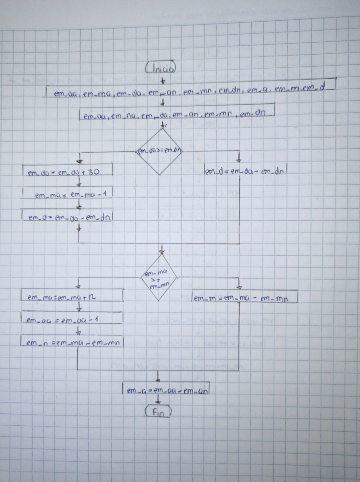 Inicio
em_aa, em_ma, em_da, em_an, em_mn, em_dn, em_a, em_m, em_d
em_aa, em_ma, em_da, em_an, em_mn, em_dn
em_da = em_da + 30
em_d = em_da - em_dn
em_ma = em_ma - 1
em_d = em_da - em_dn
em_ma
em_mn
em_ma = em_ma + 12
em_m = em_ma - em_mn
em_aa = em_aa - 1
em_a = em_aa - em_an
Fin